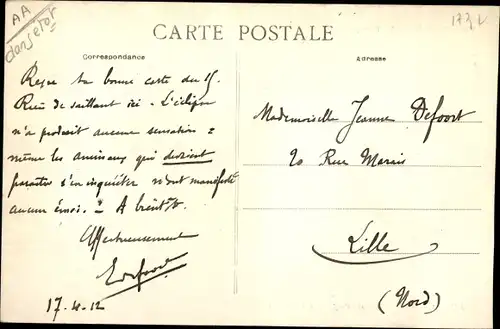 AA
CARTE POSTALE
Correspondance
Adresse
Reçu ta bonne carte du 15.
Rien de saillant ici. L'éclipse
n'a produit aucune sensation :
même les animaux qui devaient
paraître s'en inquiéter n'ont manifesté
aucun émoi. " A bientôt.
Affectueusement
EDefoort
17-4-12
Mademoiselle Jeanne Defoort
20 Rue Marais
Lille
(Nord)